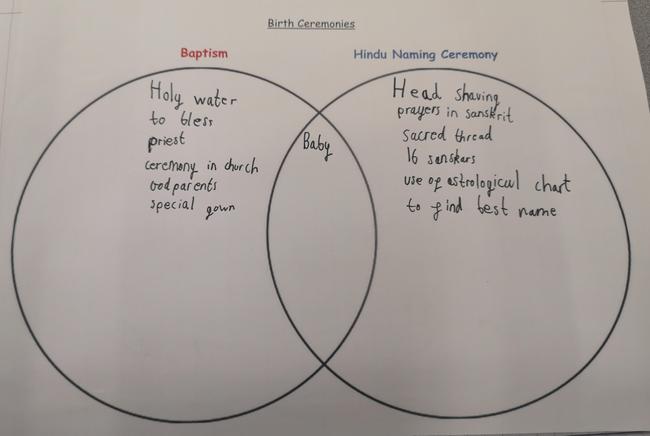 Birth Ceremonies
Baptism
Holy water
to bless
priest
ceremony in church
Godparents
special gown
Baby
Hindu Naming Ceremony
Head shaving
prayers in sanskrit
sacred thread
16 sanskars
use of astrological chart
to find best name